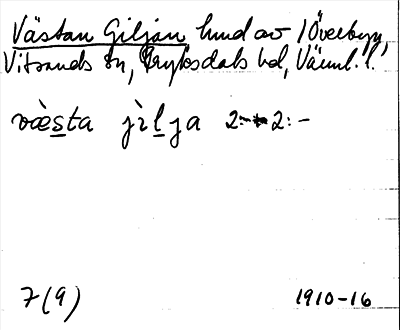 Västan Giljan hmd av Överbyn,
Vitsands sn, Fryksdals hd, Värml. l.
væ̀sta jìlja 2:- 2:-
7(9)
1910-16